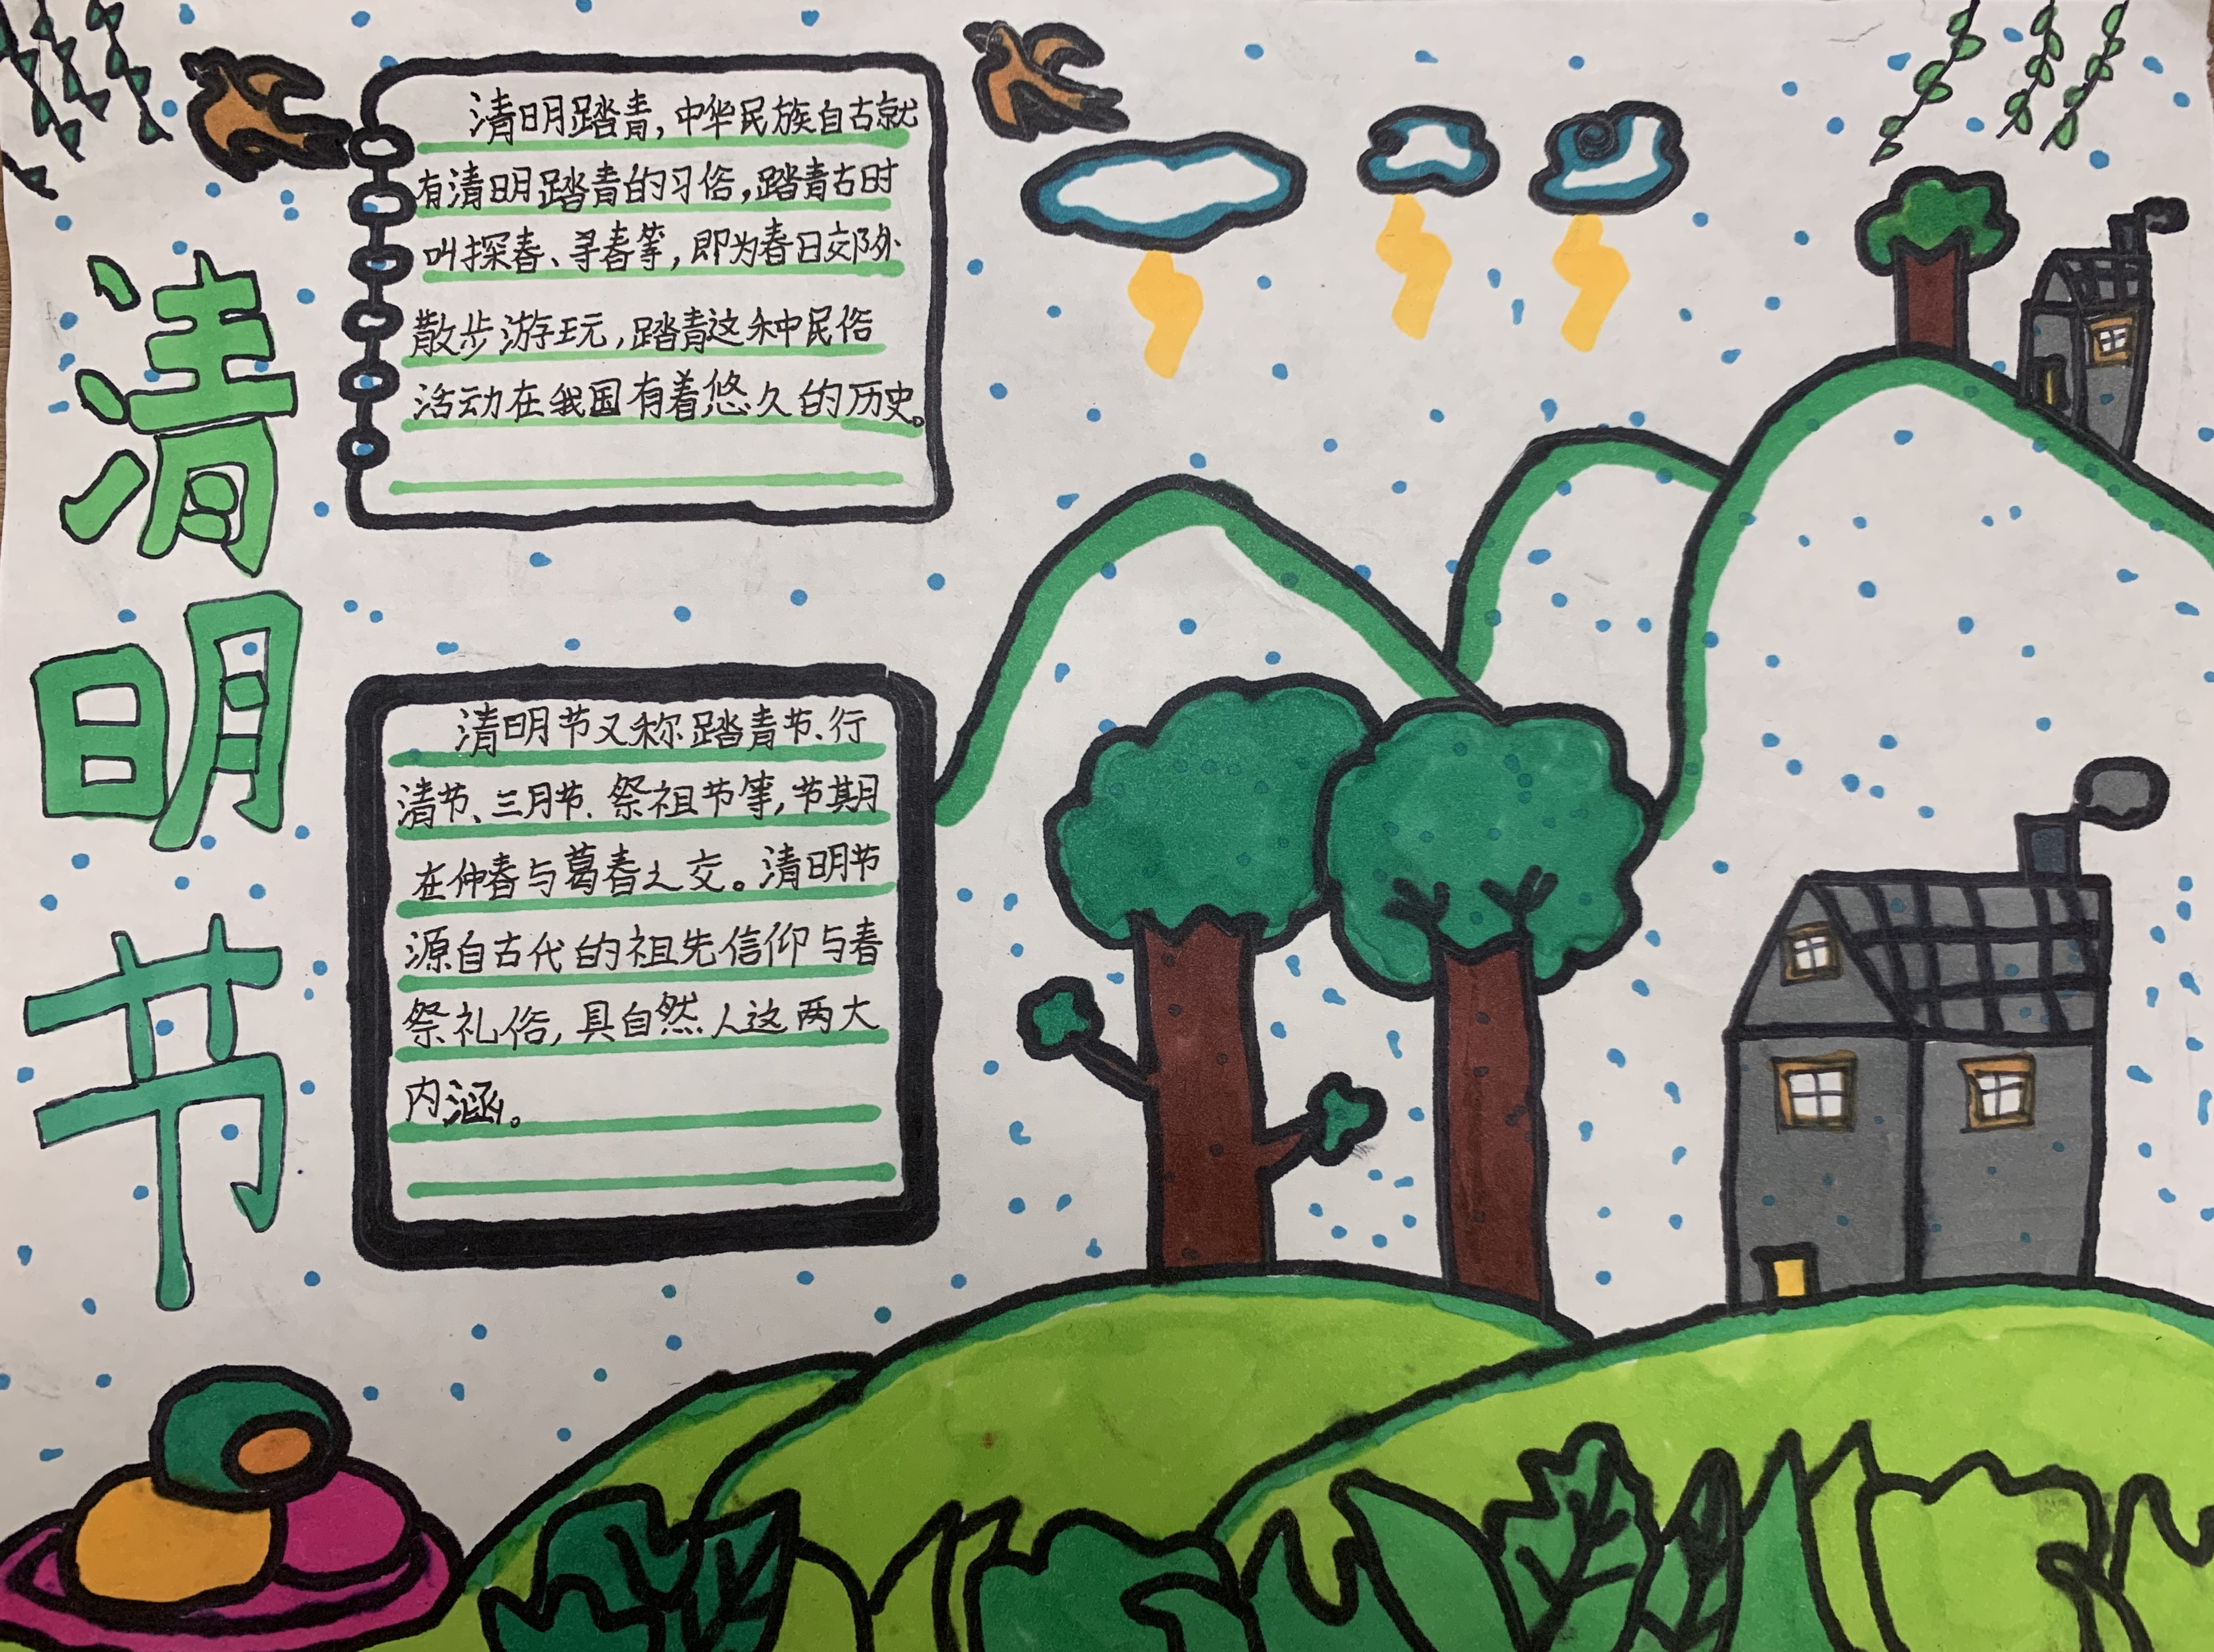 清明节
清明踏青，中华民族自古就
有清明踏青的习俗，踏青古时
叫探春、寻春等，即为春日郊外
散步游玩，踏青这种民俗
活动在我国有着悠久的历史。
清明节又称踏青节、行
清节、三月节、祭祖节等，节期
在仲春与葛春之交。清明节
源自古代的祖先信仰与春
祭礼俗，具自然人这两大
内涵。